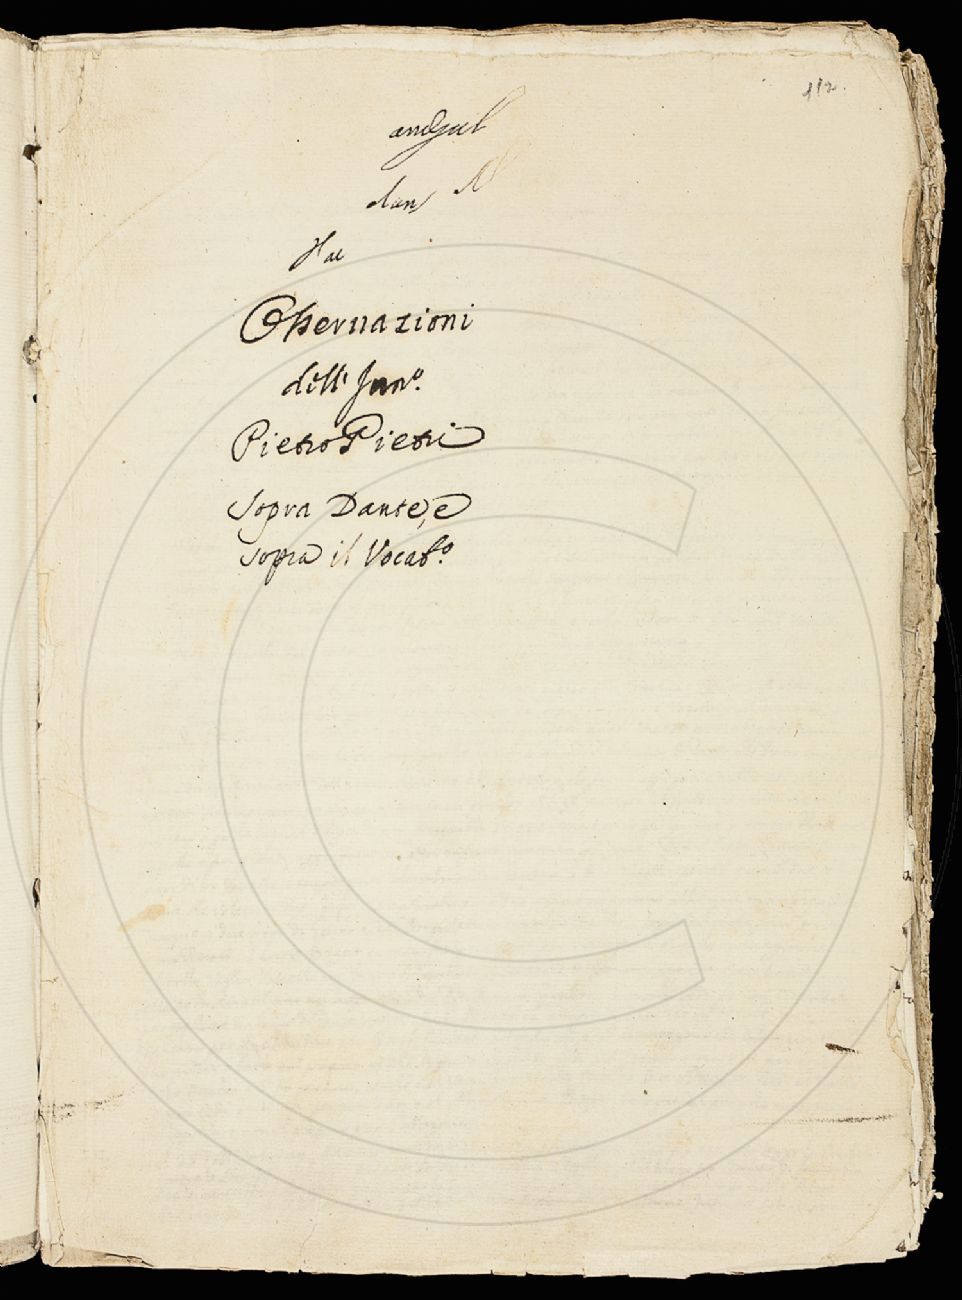 112.
dan
Hae
Osservazioni
dell'
Pietro Pietri
sopra Dante, e
sopra il Vocab.º